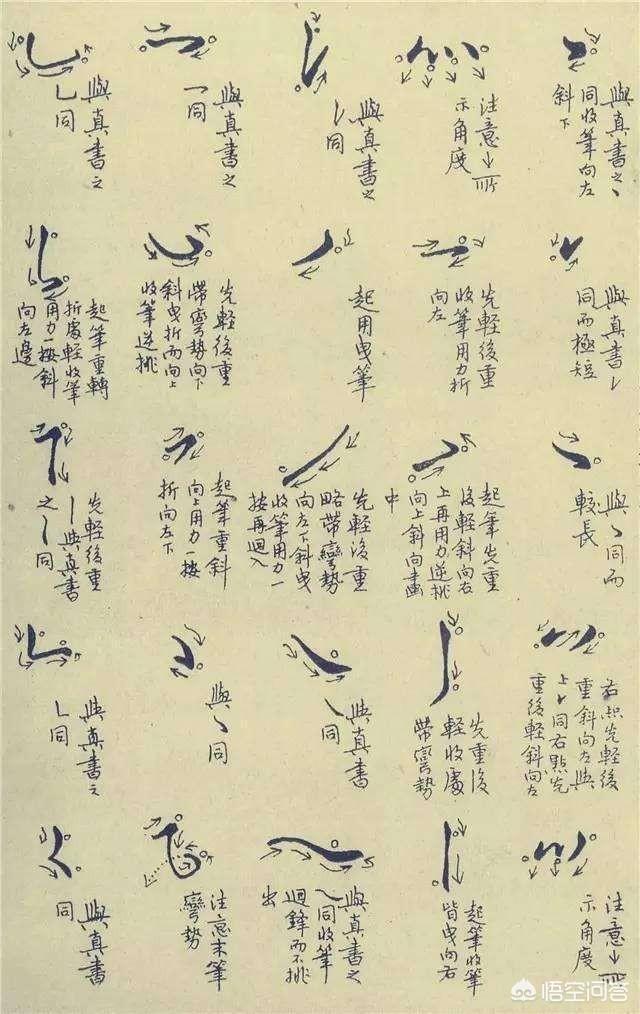 與真書之丶
同收筆向左
斜下
與真書㇀
同而極短
與丶同而
較長
右點先輕後
重斜向左與
上丶同右點先
重後輕斜向左
注意↓所
示角度
注意↓所
示角度
先輕後重
收筆用力折
向左
起筆先重
後輕斜向右
上再用力逆挑
向上斜向畫
中
先重後
輕收處
帶彎勢
起筆收筆
皆曳向右
與真書之
丿同
起用曳筆
先輕後重
略帶彎勢
向左下斜曳
收筆用力一
按再迴入
與真書
㇏同
與真書之
㇏同收筆
迴鋒而不挑
出
與真書之
一同
先輕後重
帶彎勢向下
斜曳折而向上
收筆逆挑
起筆重斜
向上用力一按
折向左下
與丶同
注意末筆
彎勢
與真書之
乚同
起筆重轉
折處輕收筆
用力一按斜
向左邊
先輕後重
亅與真書
之亅同
與真書之
乚同
與真書
同